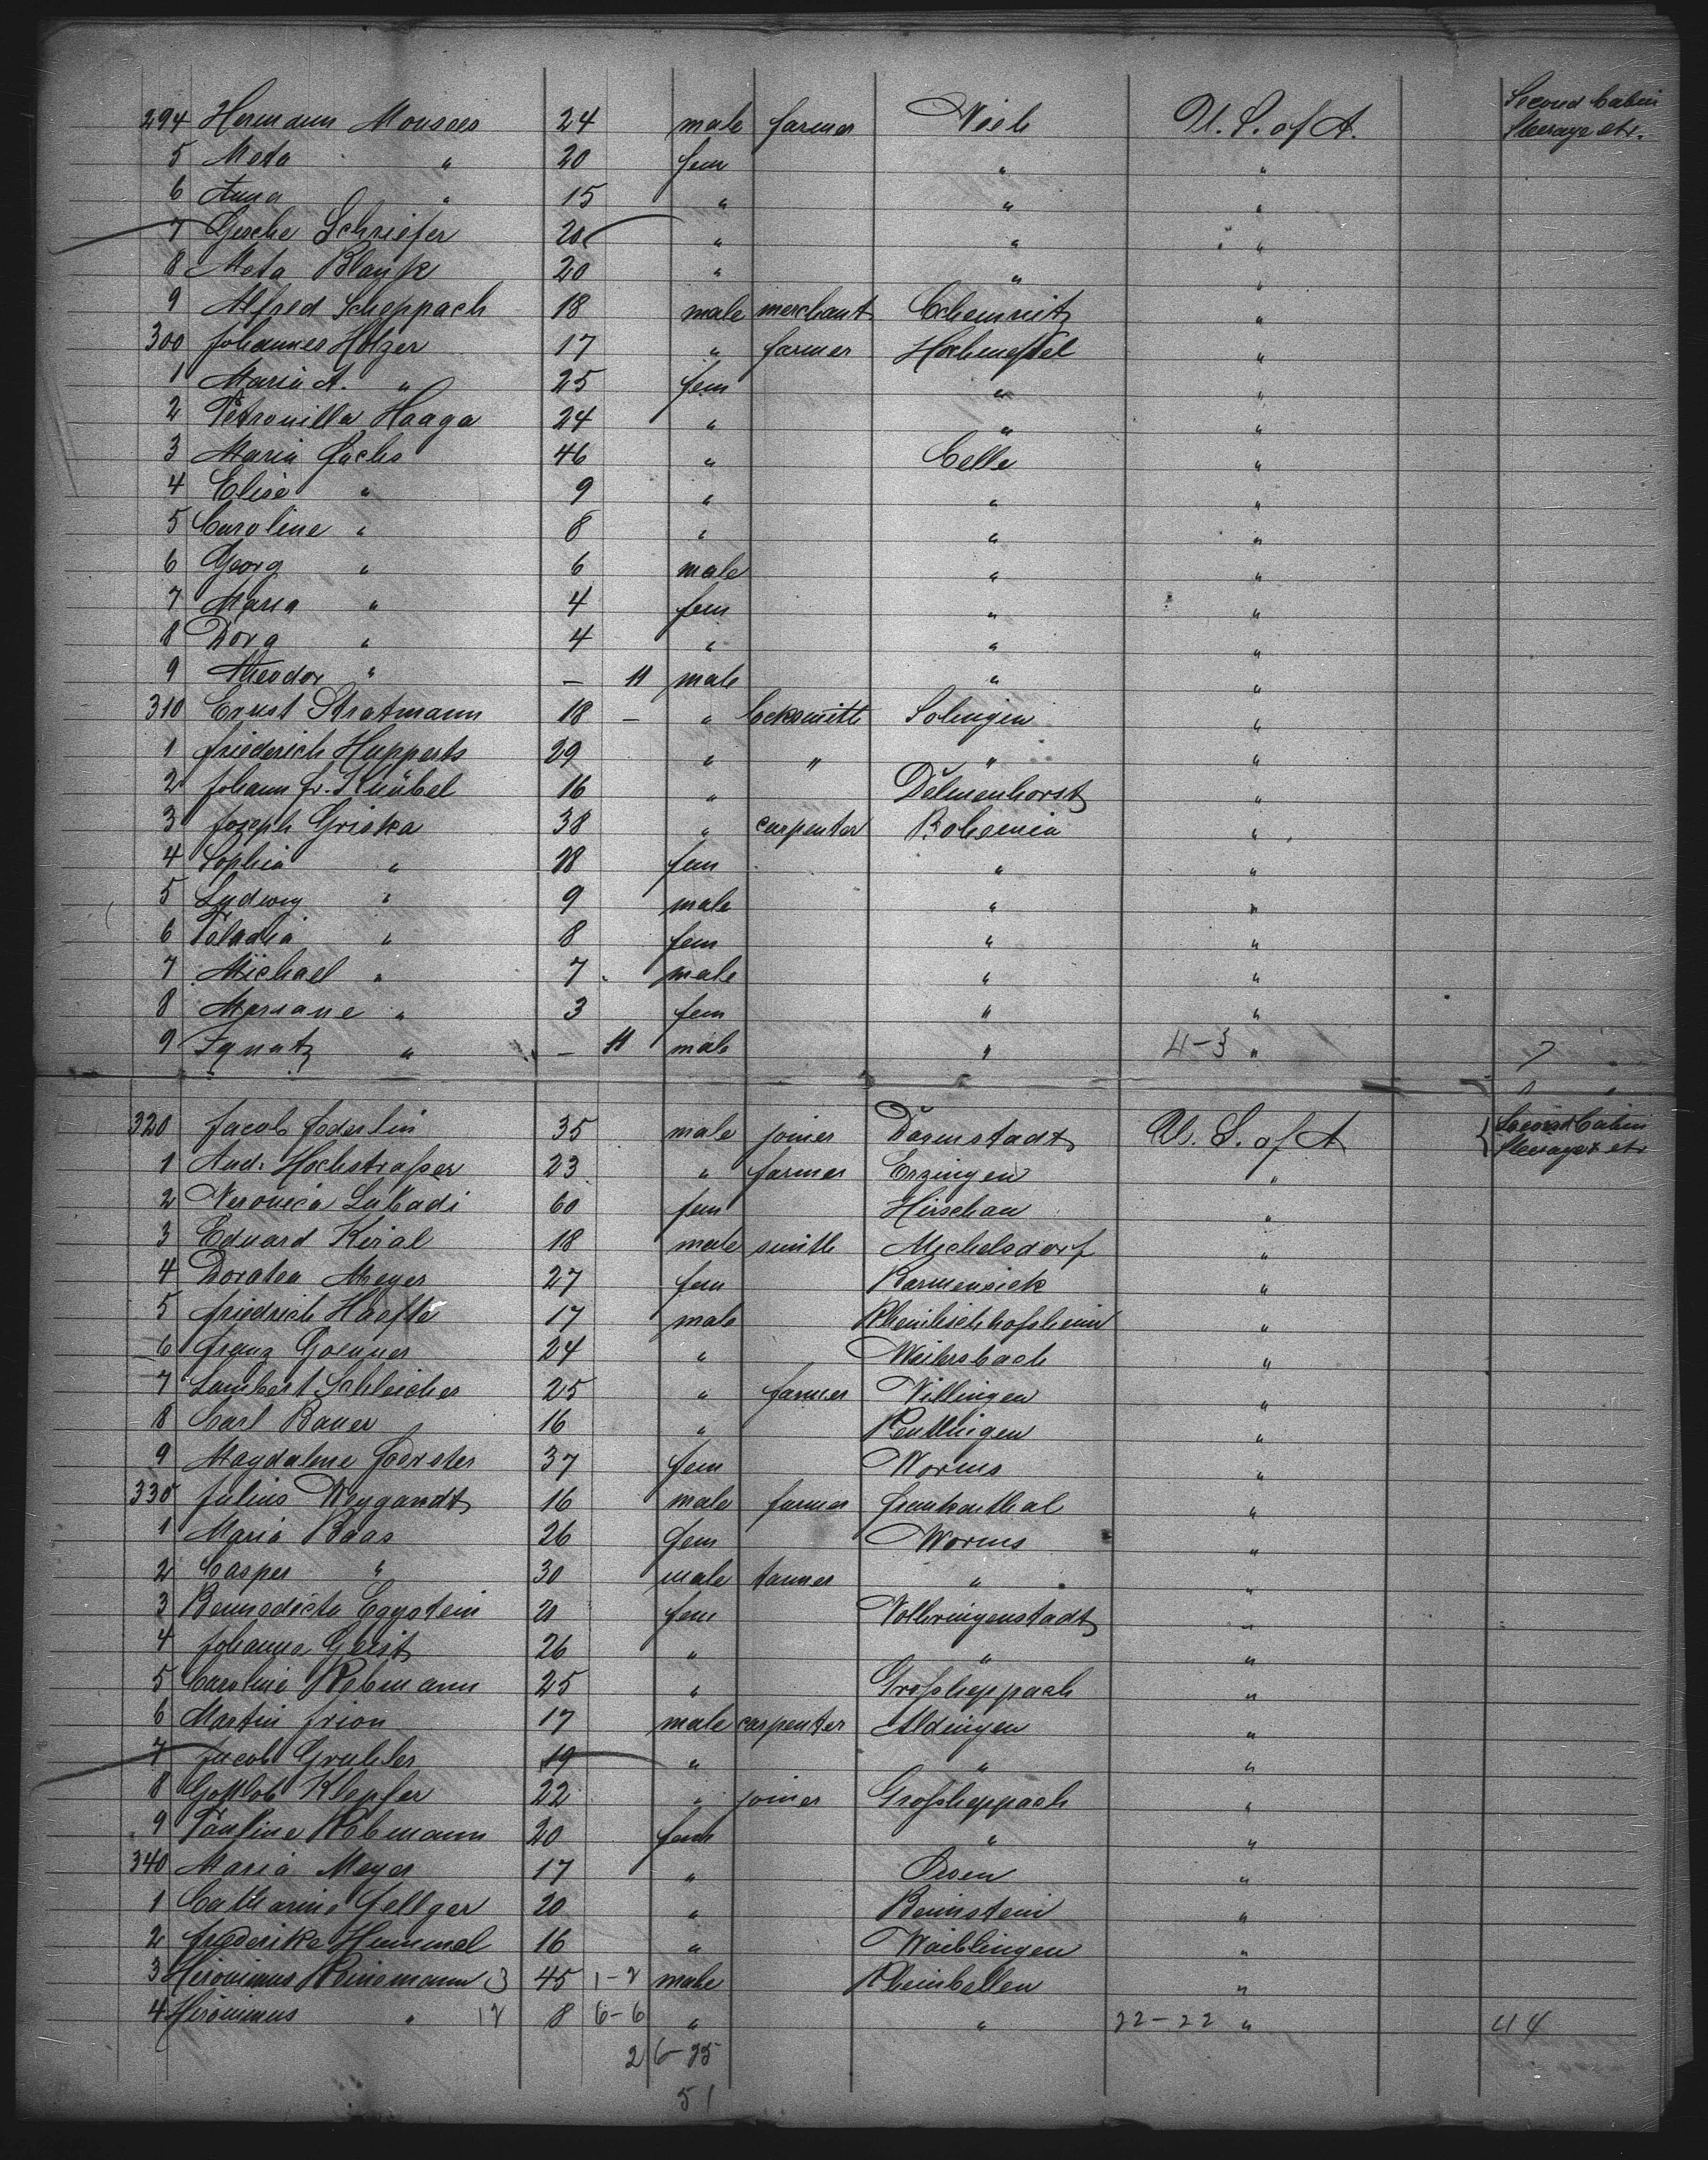 Second Cabin
294 Hermann Monsees 24 male farmer U. S. of A. Steerage etc.
5 Meta " 20 fem " "
6 Anna " 15 " " "
7 Gesche Schriefer 20 " " "
8 Meta Blank 20 " " "
9 Alfred Scheppach 18 male merchant Chemnitz "
300 Johannes Holzer 17 " farmer "
1 Maria A. " 25 fem " "
2 Petronilla Haaga 24 " " "
3 Maria Fuchs 46 " Celle "
4 Elise " 9 " " "
5 Caroline " 8 " " "
6 Georg " 6 male " "
7 Maria " 4 fem " "
8 Dora " 4 " " "
9 Theodor " — 11 male " "
310 Ernst Stratmann 18 — " locksmith Solingen "
1 Friederich Hupperts 29 " " " "
2 Johann Fr. Knübel 16 " Delmenhorst "
3 Joseph Griska 38 " carpenter Bohemia "
4 Sophia " 18 fem " "
5 Ludwig " 9 male " "
6 " 8 fem " "
7 Michael " 7 male " "
8 Mariane " 3 fem " "
9 Ignatz " — 11 male " 4-3 " 7
320 Jacob Ederlin 35 male joiner Darmstadt U. S. of A Second Cabin
1 And. Hochstraßer 23 " farmer Erzingen " Steerage etc
2 Veronica Lukadi 60 fem Hirschau "
3 Eduard Kiral 18 male smith Michelsdorf "
4 Doratea Meyer 27 fem Barmensiek "
5 Friedrich Haefle 17 male Rheinbischhofsheim "
6 Franz Goenner 24 " Weilersbach "
7 Lambert Schleicher 25 " farmer Villingen "
8 Carl Bauer 16 " Reutlingen "
9 Magdalene Foerster 37 fem Worms "
330 Julius Weygandt 16 male farmer Frankenthal "
1 Maria Baas 26 fem Worms "
2 Casper " 30 male tanner " "
3 Bennedicta Eggstein 21 fem "
4 Johanna Geist 26 " " "
5 Caroline Rebmann 25 " Großheppach "
6 Martin Frion 17 male carpenter Aldingen "
7 Jacob Grubler 19 " " "
8 Gottlob Klopfer 22 " joiner Großheppach "
9 Pauline Rebmann 20 fem " "
340 Maria Meyer 17 " "
1 Catharine Fellger 20 " Beinstein "
2 Frederike Hummel 16 " Waiblingen "
3 Heronimus Reinemann 3 45 1-2 male Rheinbellen "
4 Hironimus " 12 8 6-6 " " 22-22 " 44
26-25
51